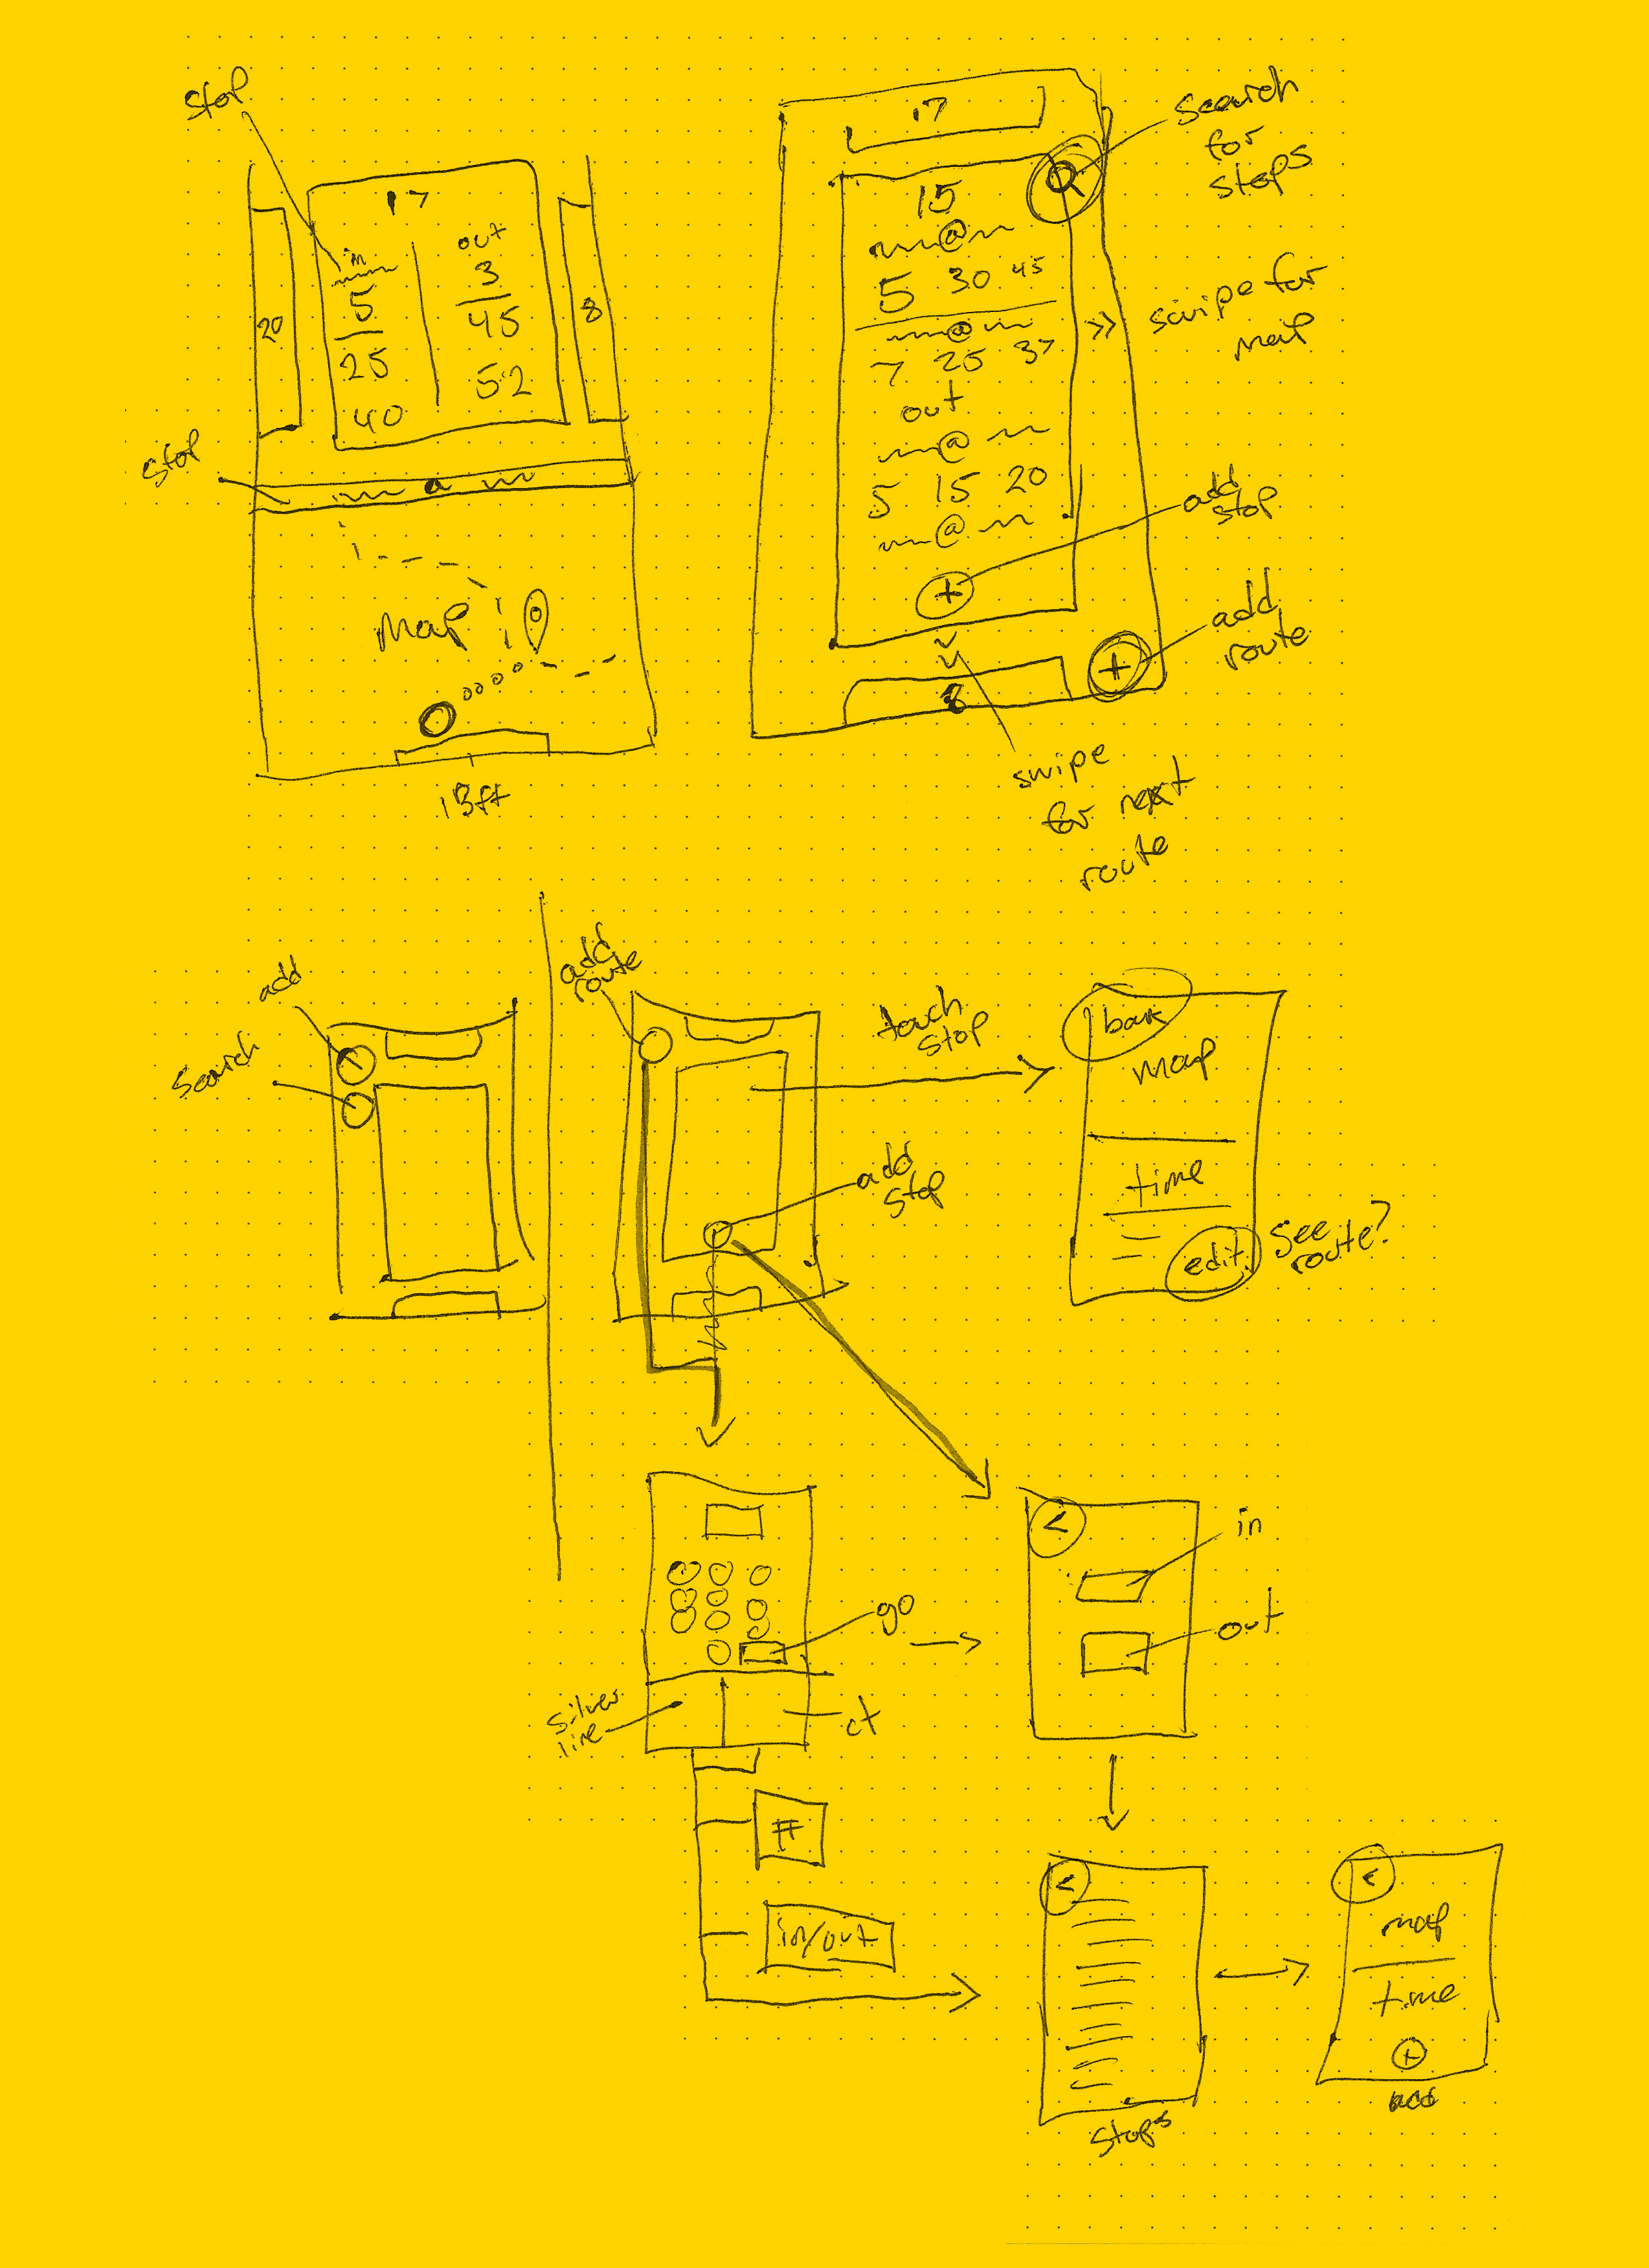 stop
17
in
out
5
3
25
45
40
52
20
8
stop
@
Map
13ft
17
search
for
stops
15
@
5 30 45
@
7 25 37
out
@
5 15 20
@
+
8
+
swipe for
map
add
stop
add
route
swipe
for next
route
add
search
add
route
touch
stop
add
stop
back
map
time
edit
see
route?
go
silver
line
ct
#
in/out
<
in
out
<
stops
<
map
time
+
add